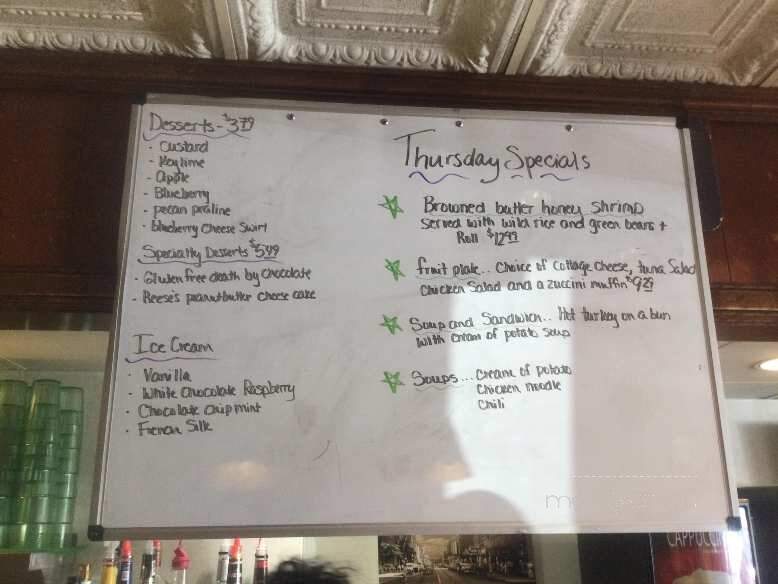 Desserts - $3.79
· Custard
· Keylime
· Apple
· Blueberry
· pecan praline
· blueberry Cheese Swirl
Specialty Desserts $5.99
· Gluten free death by Chocolate
· Reese's peanutbutter cheese cake
Ice Cream
· Vanilla
· White Chocolate Raspberry
· Chocolate chip mint
· French Silk
Thursday Specials
Browned butter honey shrimp
Served with wild rice and green beans +
Roll $12.99
fruit plate.. Choice of Cottage Cheese, tuna Salad
Chicken Salad and a zuccini muffin $9.29
Soup and Sandwich.. Hot turkey on a bun
with cream of potato soup
Soups... Cream of potato
Chicken noodle
Chili
CAPPUCC